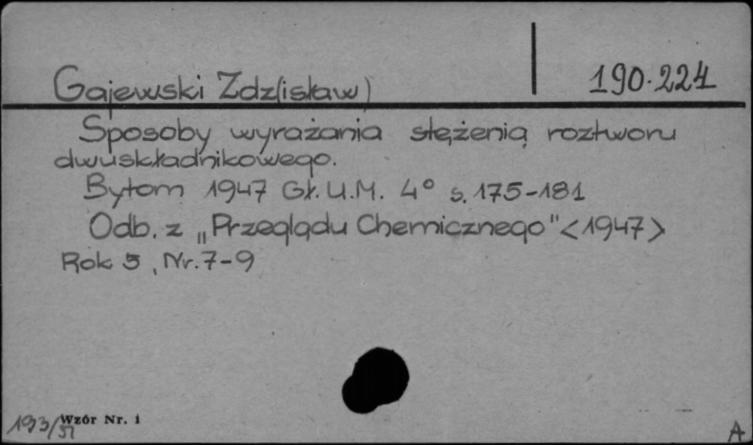 Gajewski Zdz(isław)
190.224
Sposoby wyrażania stężenią roztworu
dwuskładnikowego.
Bytom 1947 Gł. U.M. 4° s. 175-181
Odb. z „Przeglądu Chemicznego" <1947>
Rok 5, Nr. 7-9
193/51 Wzór Nr. 1
A